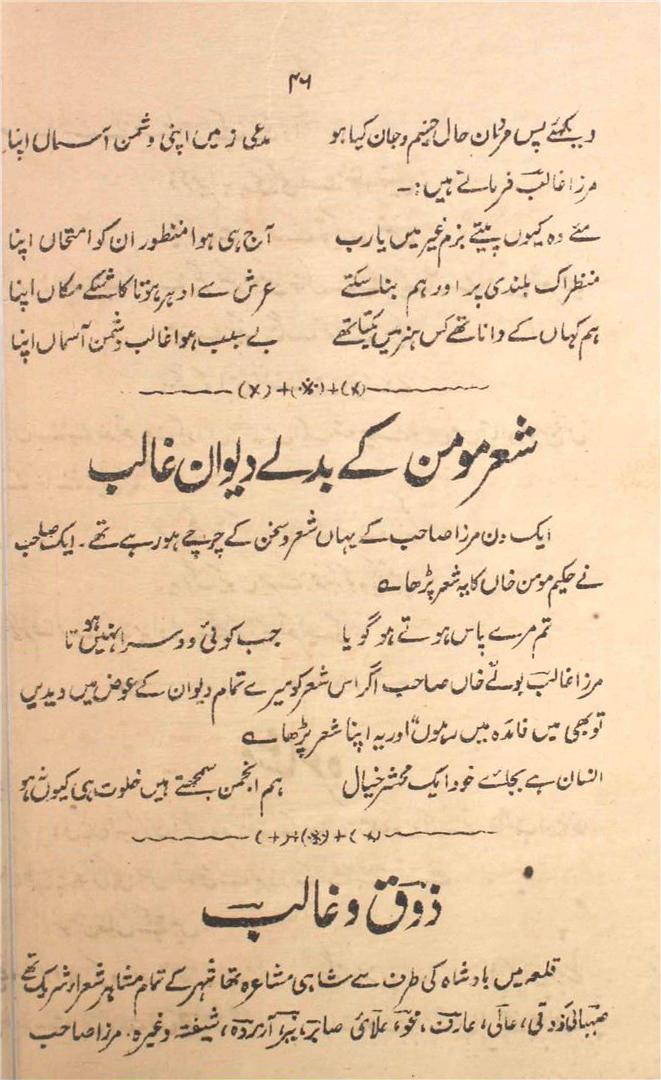 ۴۶
دیکھئے پس مردن حال جسم و جان کیا ہو مدعی زمیں اپنی دشمن آسماں اپنا
مرزا غالب فرماتے ہیں:۔
مئے وہ کیوں پیتے بزم غیر میں یارب آج ہی ہوا منظور ان کو امتحاں اپنا
منظر اک بلندی پر اور ہم بنا سکتے عرش سے ادہر ہوتا کاشکے مکاں اپنا
ہم کہاں کے دانا تھے کس ہنر میں یکتا تھے بے سبب ہوا غالب دشمن آسماں اپنا
شعر مومن کے بدلے دیوان غالب
ایک دن مرزا صاحب کے یہاں شعر و سخن کے چرچے ہو رہے تھے۔ ایک صاحب
نے حکیم مومن خاں کا یہ شعر پڑھا ؎
تم مرے پاس ہوتے ہو گویا جب کوئی دوسرا نہیں ہوتا
مرزا غالب بولے خاں صاحب اگر اس شعر کو میرے تمام دیوان کے عوض میں دیدیں
تو بھی میں فائدہ میں رہوں اور یہ اپنا شعر پڑھا ؎
انسان ہے بجائے خود ایک محشر خیال ہم انجمن سمجھتے ہیں خلوت ہی کیوں نہ ہو
ذوق و غالب
قلعہ میں بادشاہ کی طرف سے شاہی مشاعرہ تھا شہر کے تمام مشاہیر شعراء شریک تھے
صہبائی ذوقی، عالی، عارف، محو، علائی صابر، نیر آزردہ، شیفتہ وغیرہ۔ مرزا صاحب